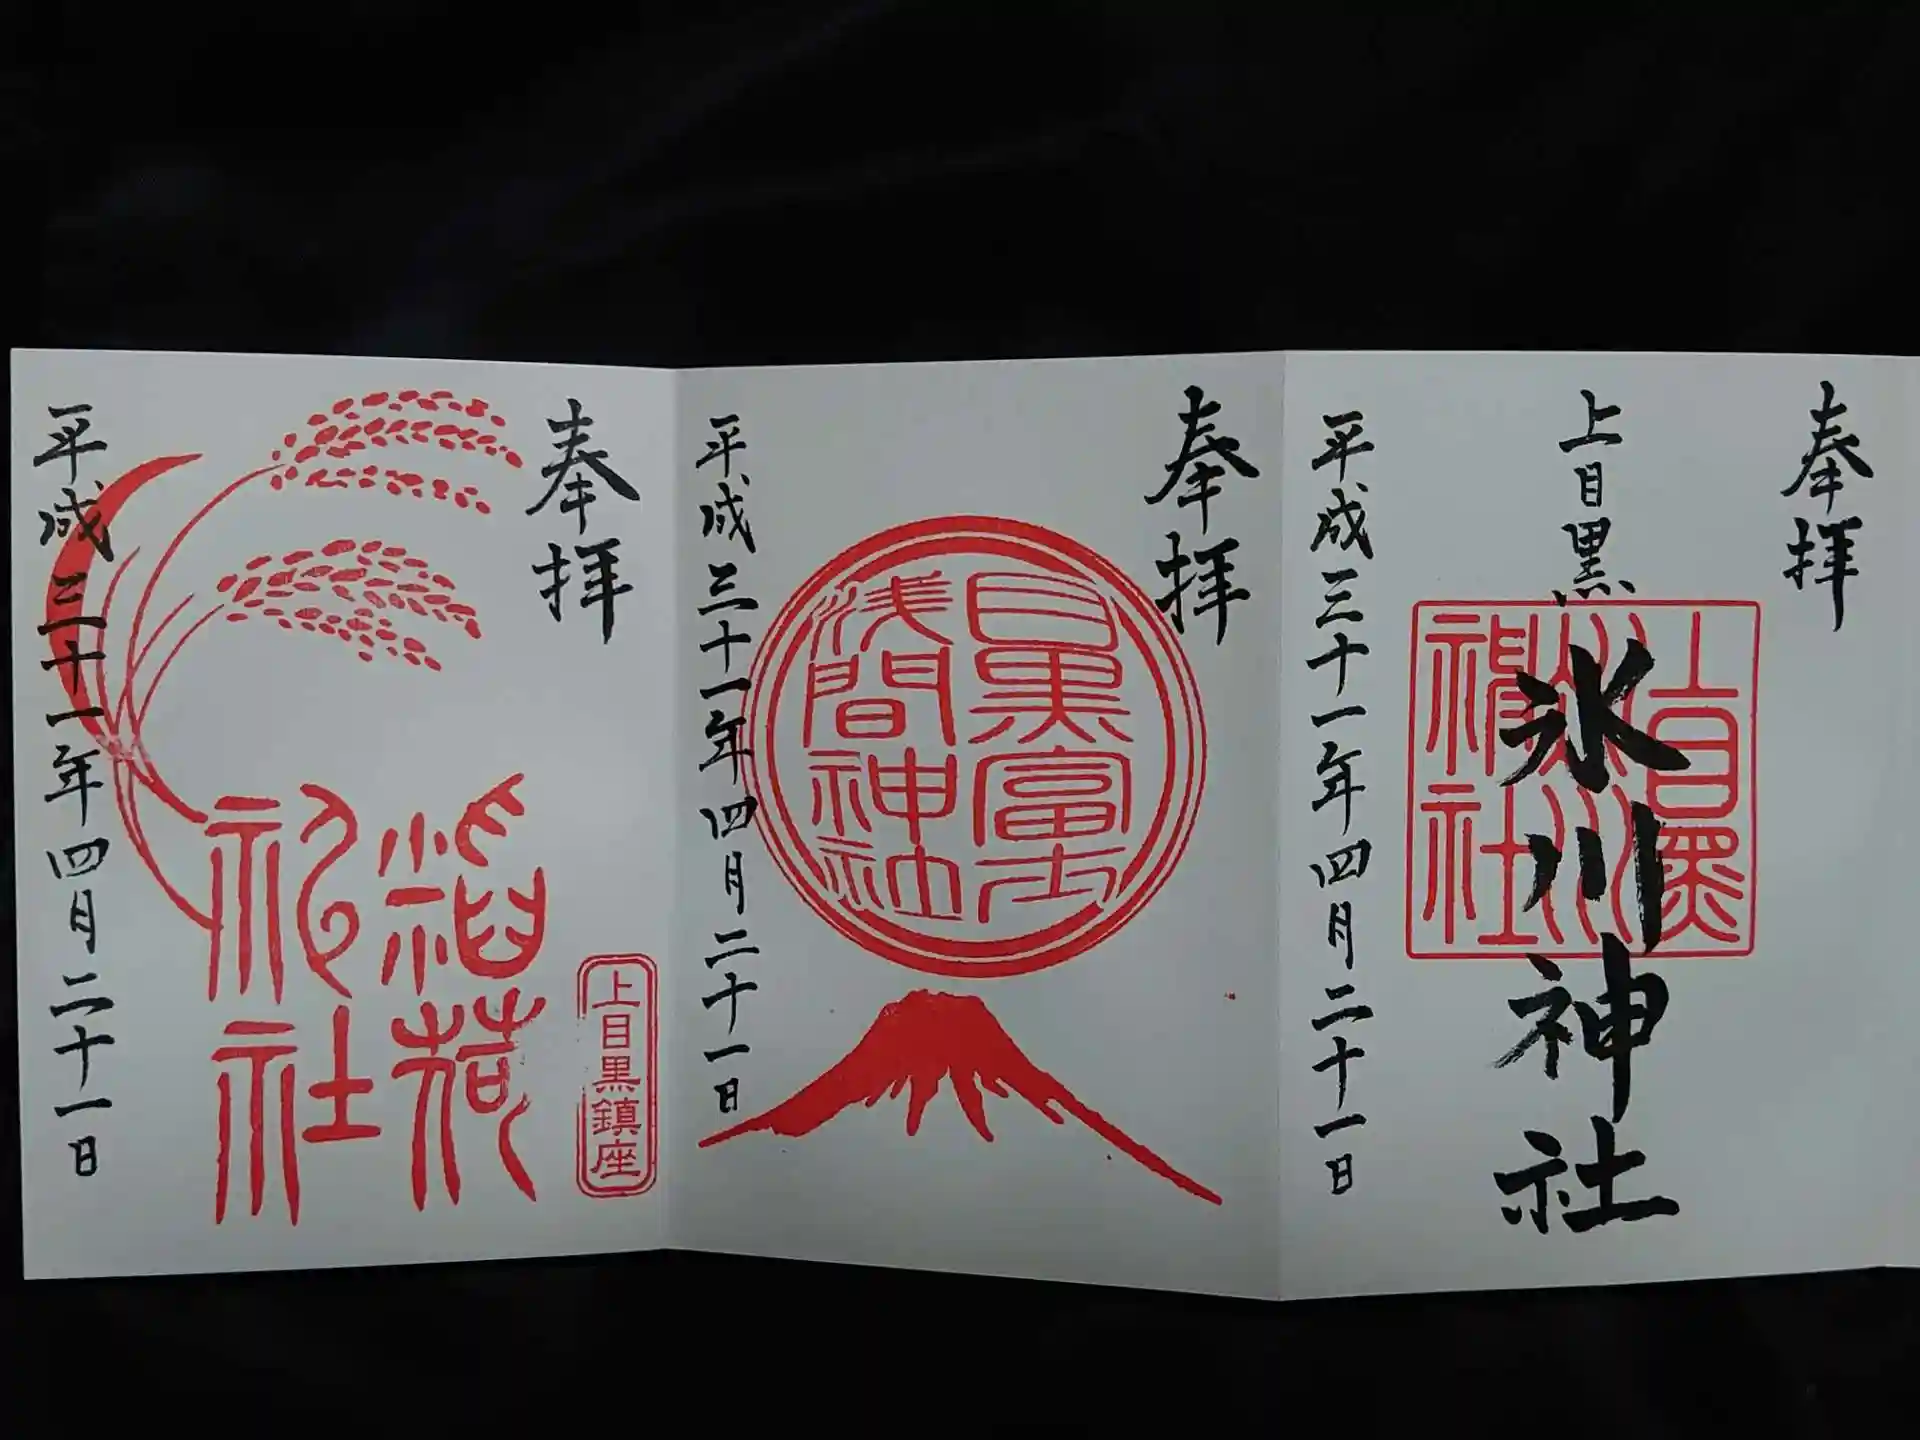 奉拝
上目黒
氷川神社
上目黒
氷川
神社
平成三十一年四月二十一日
奉拝
目黒富士
浅間神社
平成三十一年四月二十一日
奉拝
上目黒鎮座
稲荷
神社
平成三十一年四月二十一日